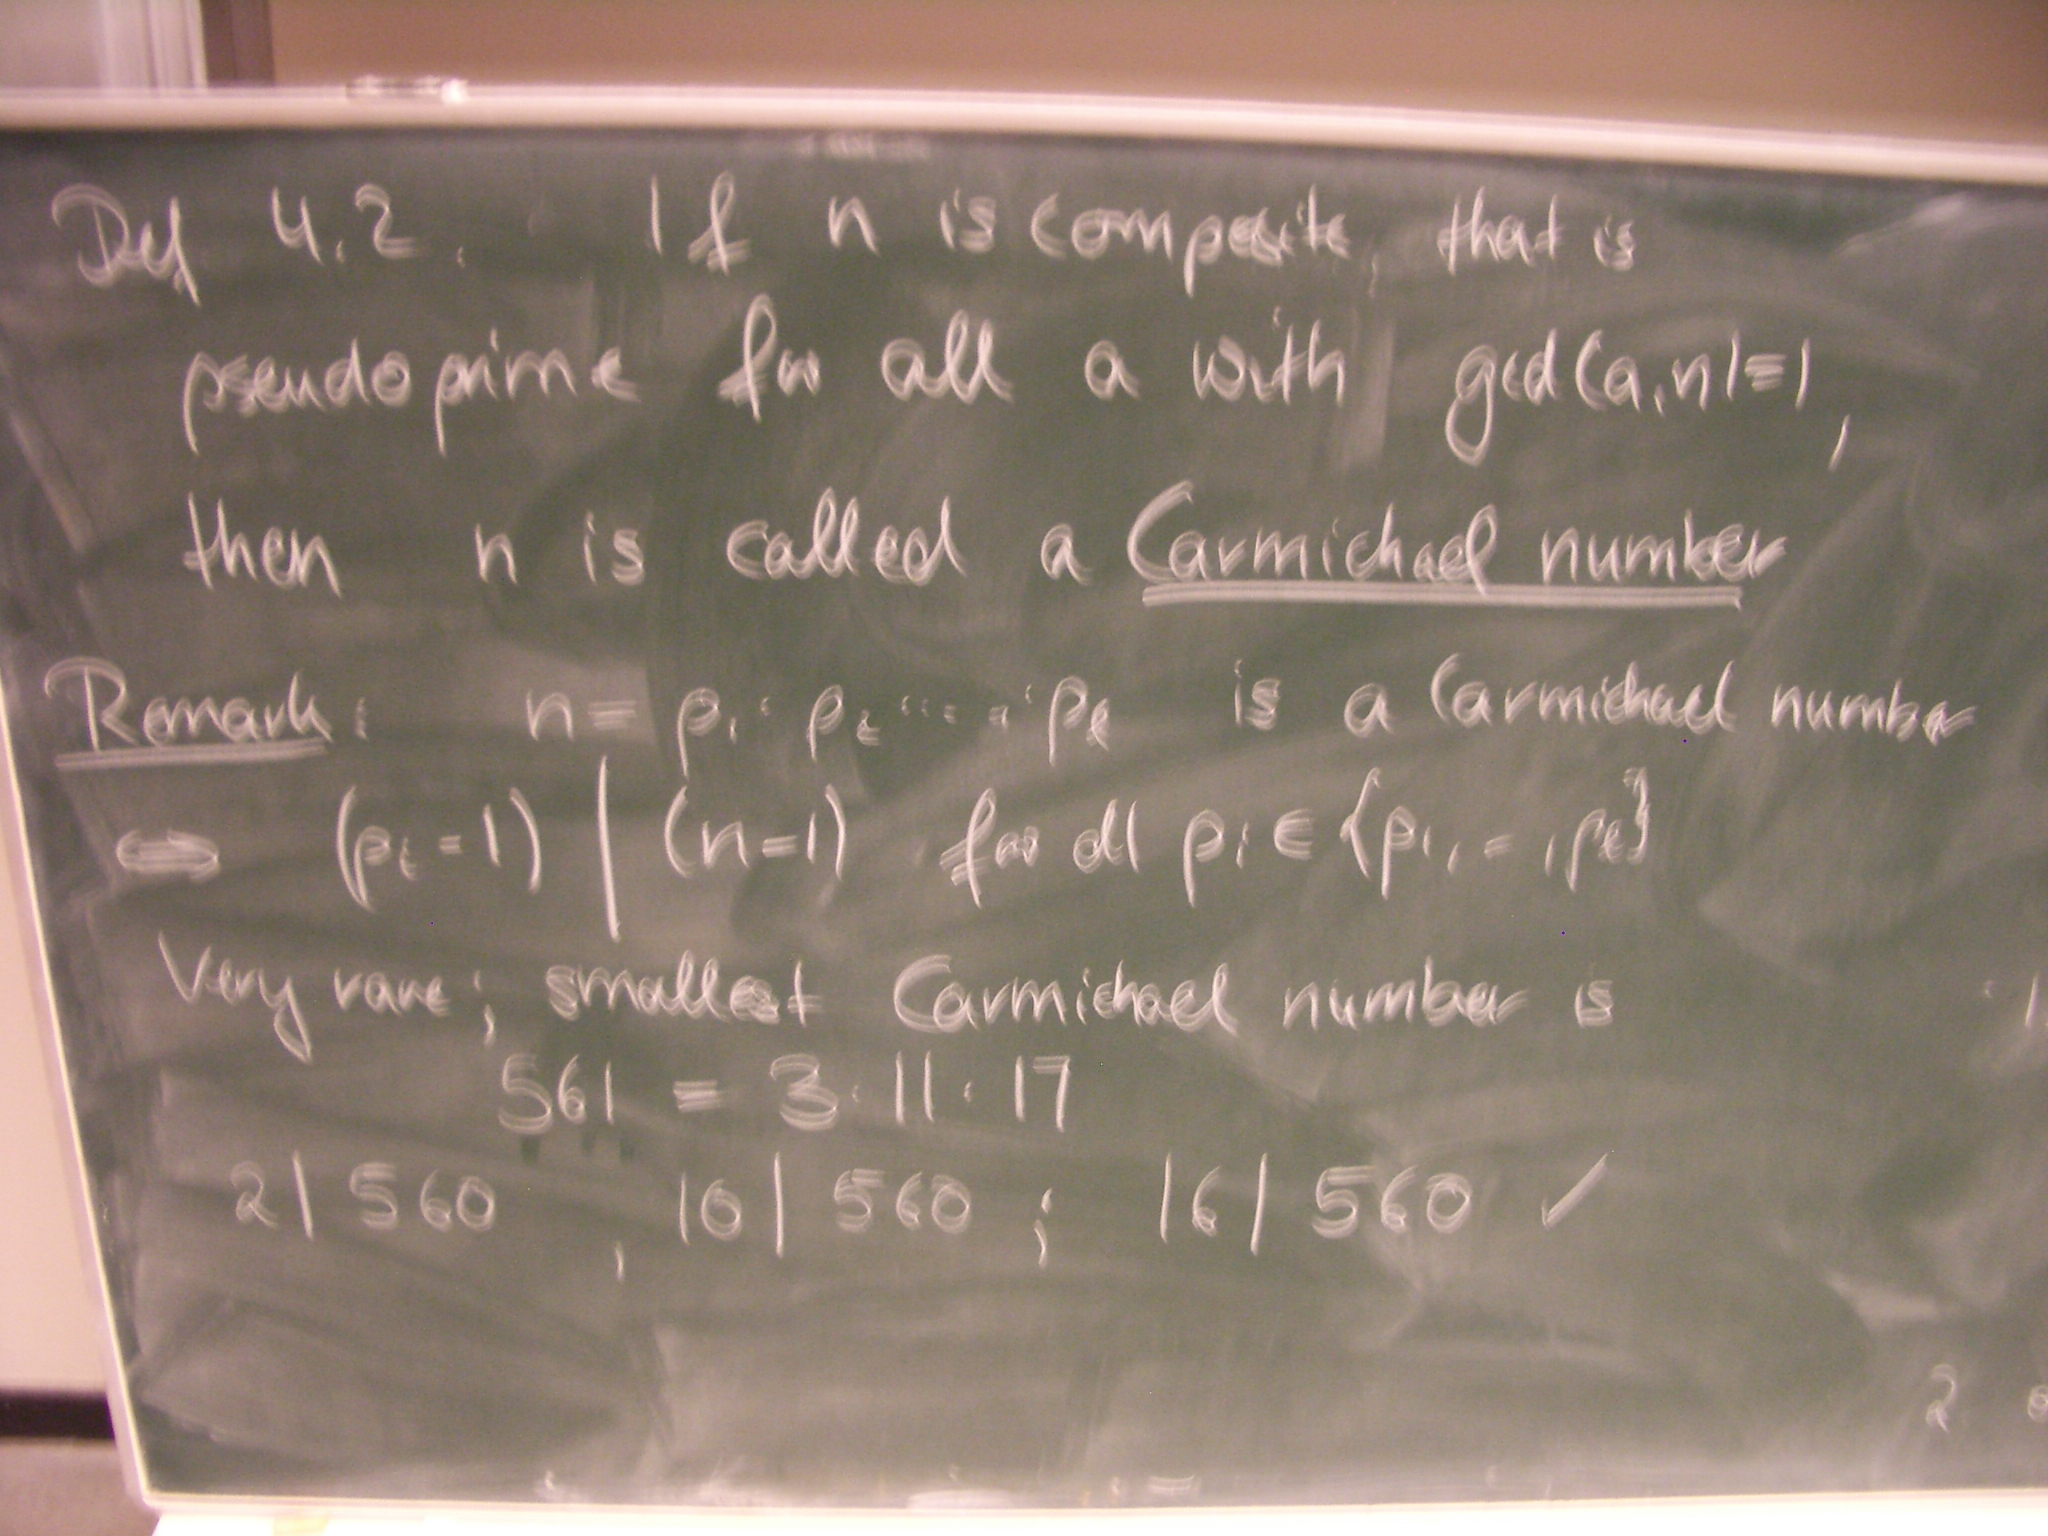 Def 4.2. If n is composite, that is
pseudoprime for all a with gcd(a,n)=1,
then n is called a Carmichael number
Remark: n = p₁ · p₂ · ... · pₖ is a Carmichael number
⇔ (pᵢ-1) | (n-1) for all pᵢ ∈ {p₁, - , pₖ}
Very rare; smallest Carmichael number is
561 = 3 · 11 · 17
2 | 560 , 10 | 560 ; 16 | 560 ✓
2